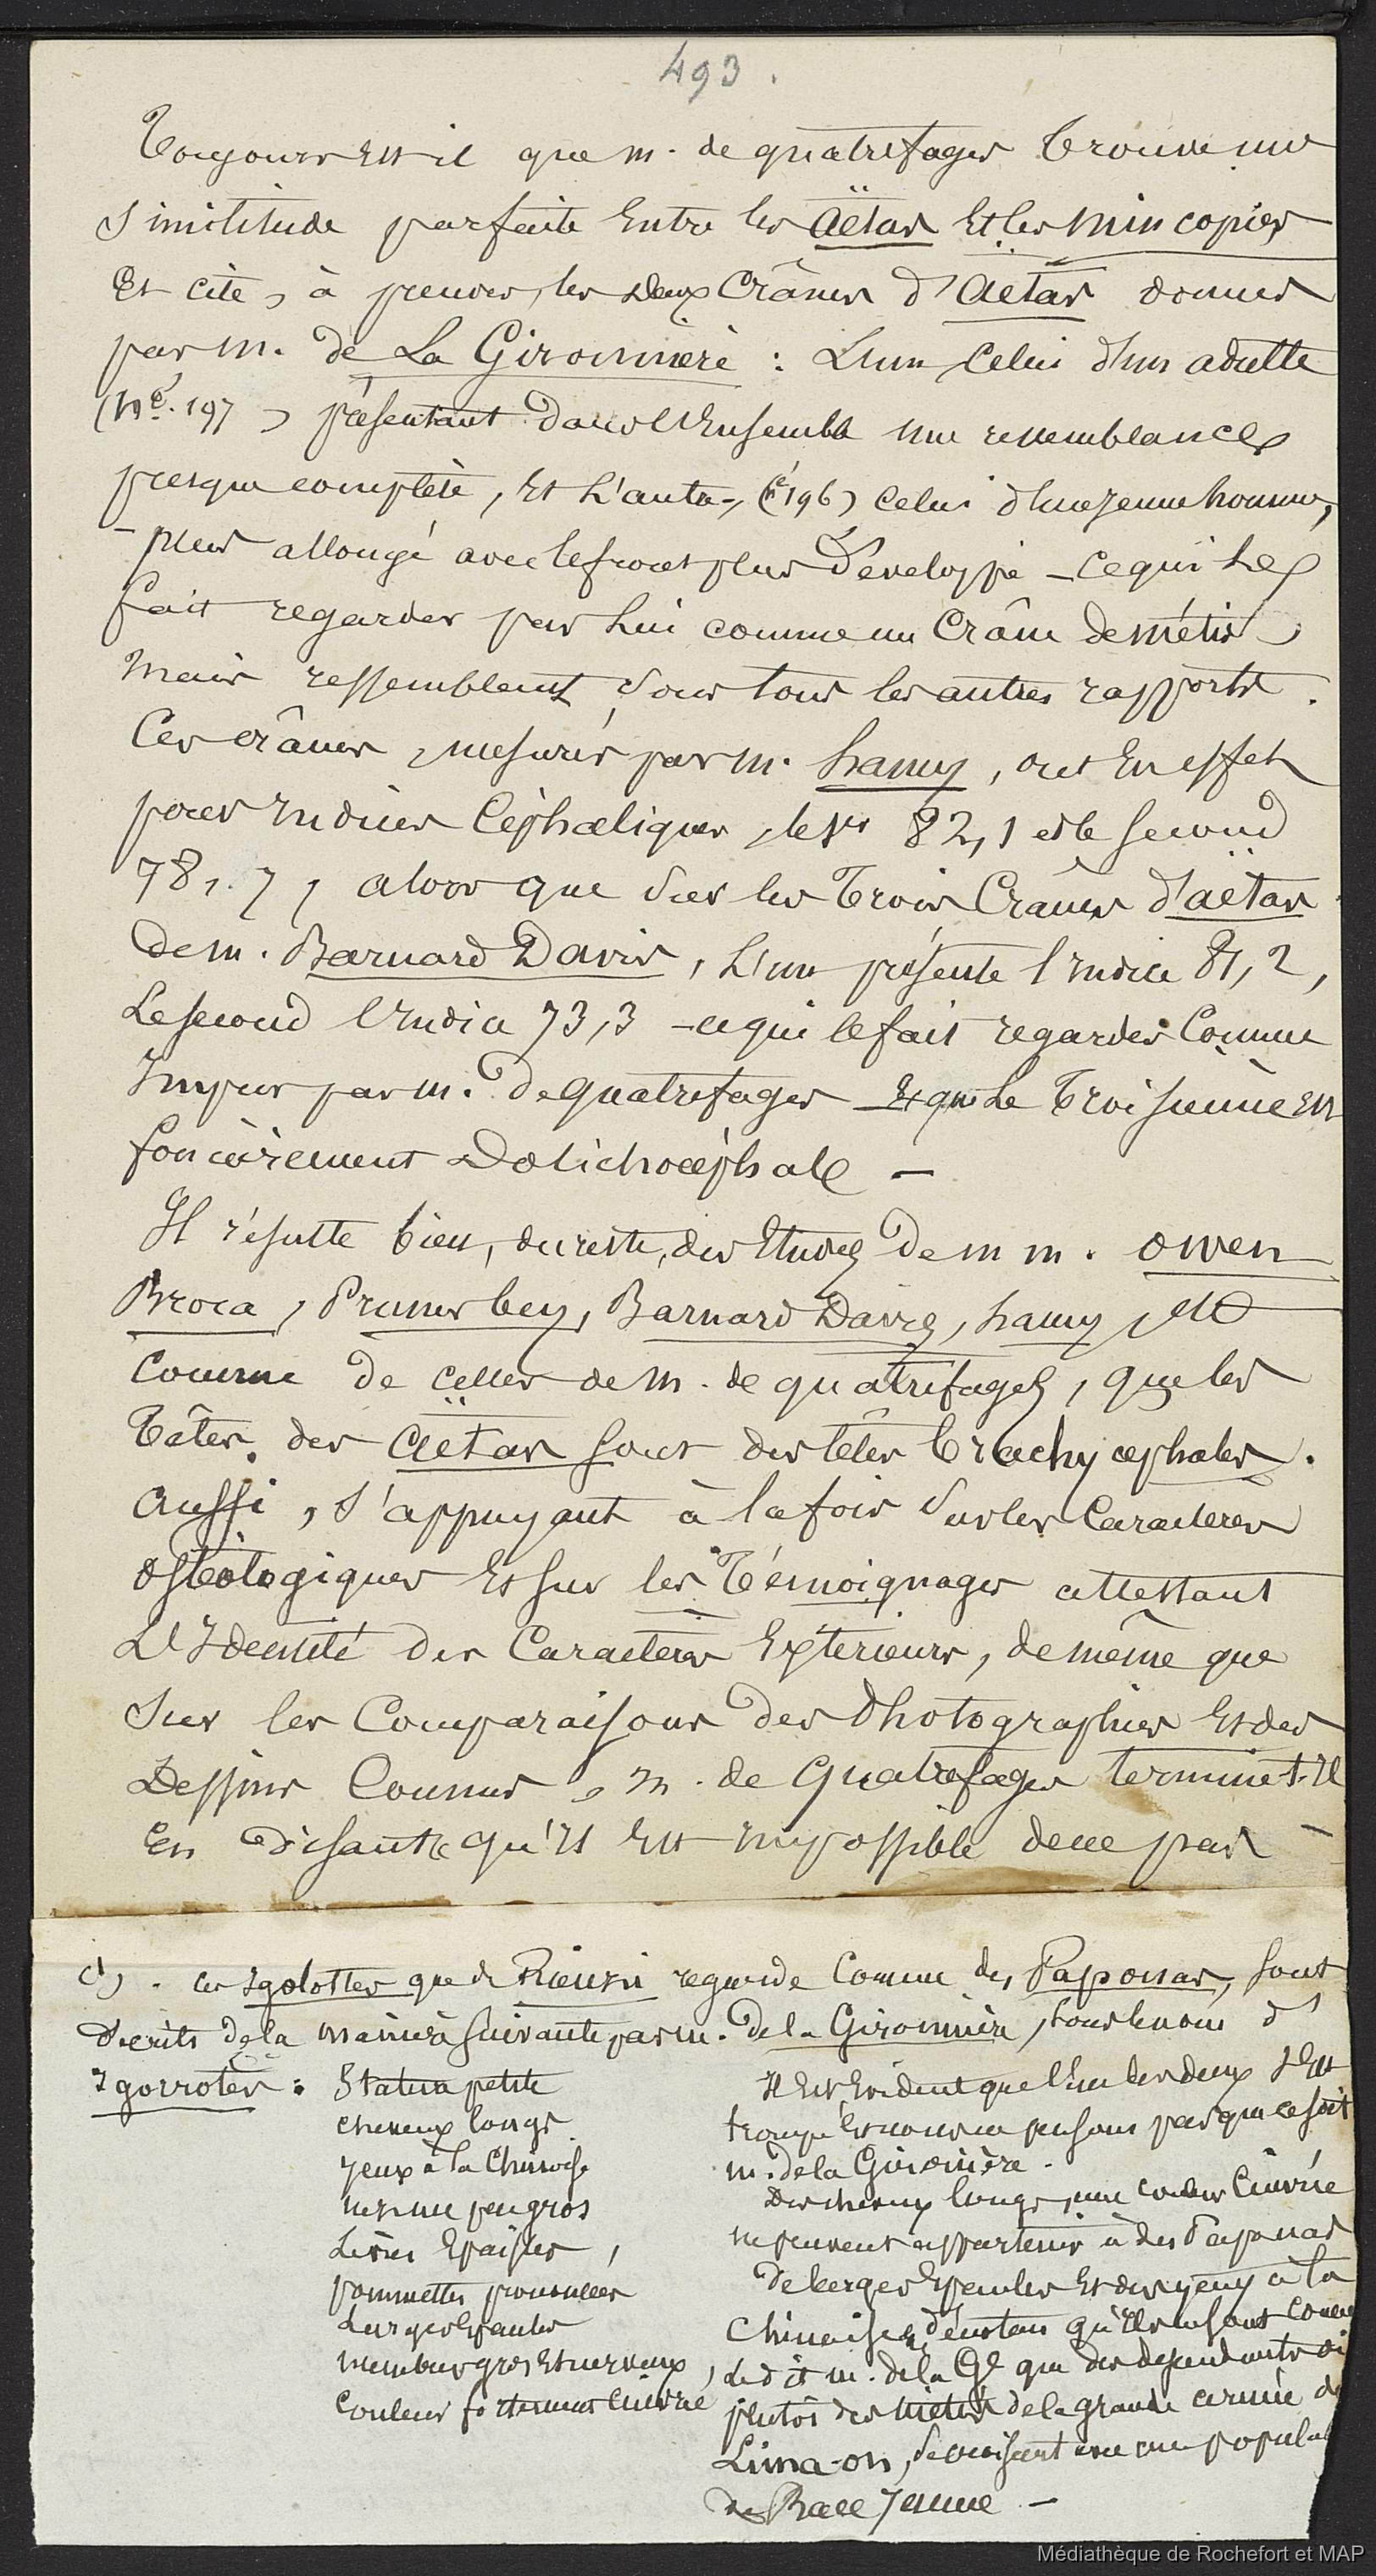 493.
Toujours est il que m. de quatrefages trouve une
similitude parfaite Entre les Aëtas Et les Mincopies
Et cite, à preuves, les deux Crânes d'Aëtas donnés
par m. de La Gironnière : L'un celui d'un adulte
(N°. 197) présentant dans l'Ensemble une ressemblance
presque complète, Et L'autre, (n° 196) celui d'un jeune homme,
plus allongé avec le front plus développé – ce qui le
fait regarder par Lui comme un Crâne de métis,
mais ressemblant sous tous les autres rapports.
Ces crânes, mesurés par m. hamy, ont En effet
pour Indices Céphaliques, le 1er 82,1 et le second
78,7, alors que sur les Trois Crânes d'aëtas
de m. Barnard Davis, L'un présente l'Indice 81,2,
Le second l'Indice 73,3 – ce qui le fait regarder Comme
Impur par m. de quatrefages – Et que Le Troisième Est
foncièrement Dolichocéphale –
Il résulte bien, du reste, des Etudes de m m. owen
Broca, Pruner bey, Barnard Davis, hamy, etc
Comme de celles de m. de quatrefages, que les
Têtes des Aëtas sont des têtes brachycephales.
Aussi, s'appuyant à la fois sur les Caractères
ostéologiques Et sur les Témoignages attestant
L'Identité des Caractères Extérieurs, de même que
sur les Comparaisons des Photographies Et des
Dessins Connus, m. de Quatrefages termine t-Il
En disant "qu'Il Est Impossible de ne pas –
(1). – les Igolottes que de Rienzi regarde Comme des Papouas, sont
décrits de la manière suivante par m. de la Gironnière, sous le nom d'
Igorrotès : Stature petite
cheveux longs
yeux à la Chinoise
nez un peu gros
Lèvres Epaisses,
pommettes prononcées
Larges Epaules
membres gros Et nerveux,
Couleur fortement cuivrée
Il Est Evident que l'un des deux s'Est
trompé Et nous ne pensons pas que ce soit
m. de la Gironière.
Des cheveux longs, une couleur Cuivrée
ne peuvent appartenir à des Papouas
De larges Epaules Et des yeux à la
Chinoise, qu'Ils ne sont Comme
Le dit m. de la Ge que des descendants ou
plutôt des métis de la grande armée de
Lima-on, se croisant avec une populat
de Race Jaune –
Médiathèque de Rochefort et MAP